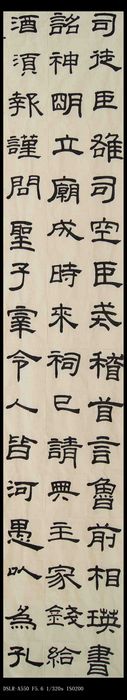 司徒臣雄司空臣戒稽首言魯前相瑛書
詔神明立廟成時來祠已請典主家錢給
酒須報謹問聖子宰令人皆河愚以為孔
DSLR-A350 F5.6 1/320s ISO200